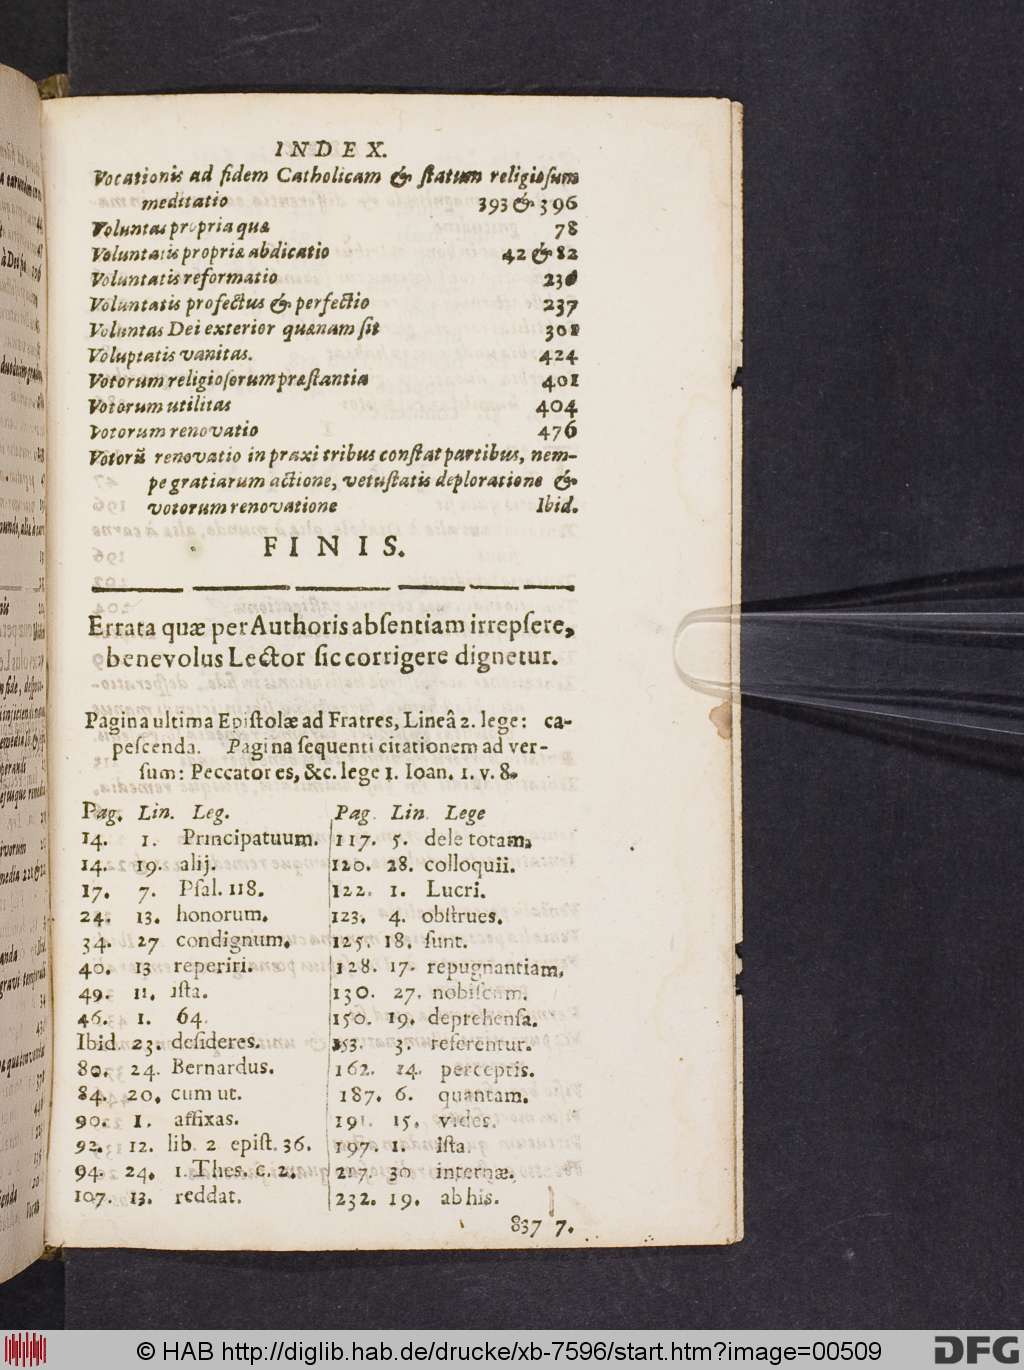 INDEX.
Vocationis ad fidem Catholicam & ſtatum religioſum
meditatio 393 & 396
Voluntas propria quæ 78
Voluntatis propriæ abdicatio 42 & 82
Voluntatis reformatio
Voluntatis profectus & perfectio 237
Voluntas Dei exterior quænam ſit 301
Voluptatis vanitas. 424
Votorum religioſorum præſtantia 401
Votorum utilitas 404
Votorum renovatio 476
Votorũ renovatio in praxi tribus conſtat partibus, nem-
pe gratiarum actione, vetuſtatis deploratione &
votorum renovatione Ibid.
FINIS.
Errata quæ per Authoris abſentiam irrepſere,
benevolus Lector ſic corrigere dignetur.
Pagina ultima Epiſtolæ ad Fratres, Lineâ 2. lege: ca-
peſcenda. Pagina ſequenti citationem ad ver-
ſum: Peccatores, &c. lege 1. Ioan. 1. v. 8.
Pag. Lin. Leg.
14. 1. Principatuum.
14. 19. alij.
17. 7. Pſal. 118.
24. 13. honorum.
34. 27 condignum.
40. 13 reperiri.
49. 11. iſta.
46. 1. 64.
Ibid. 23. deſideres.
80. 24. Bernardus.
84. 20. cum ut.
90. 1. affixas.
92. 12. lib. 2 epiſt. 36.
94. 24. 1. Theſ. c. 2.
107. 13. reddat.
Pag. Lin. Lege
117. 5. dele totam.
120. 28. colloquii.
122. 1. Lucri.
123. 4. obſtrues.
125. 18. ſunt.
128. 17. repugnantiam.
130. 27. nobiſcum.
150. 19. deprehenſa.
153. 3. referentur.
162. 14. perceptis.
187. 6. quantam.
191. 15. vides.
197. 1. Iſta.
217. 30 internæ.
232. 19. ab his.
837 7.
© HAB http://diglib.hab.de/drucke/xb-7596/start.htm?image=00509
DFG